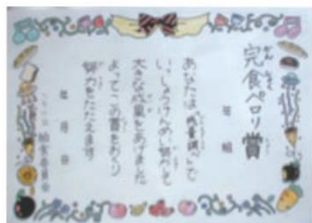 完食ペロリ賞
年 組
あなたは残量調べで
いっしょうけんめい努力し
大きな成果をあげました
よってこの賞をおくり
努力をたたえます
年 月 日
給食委員会